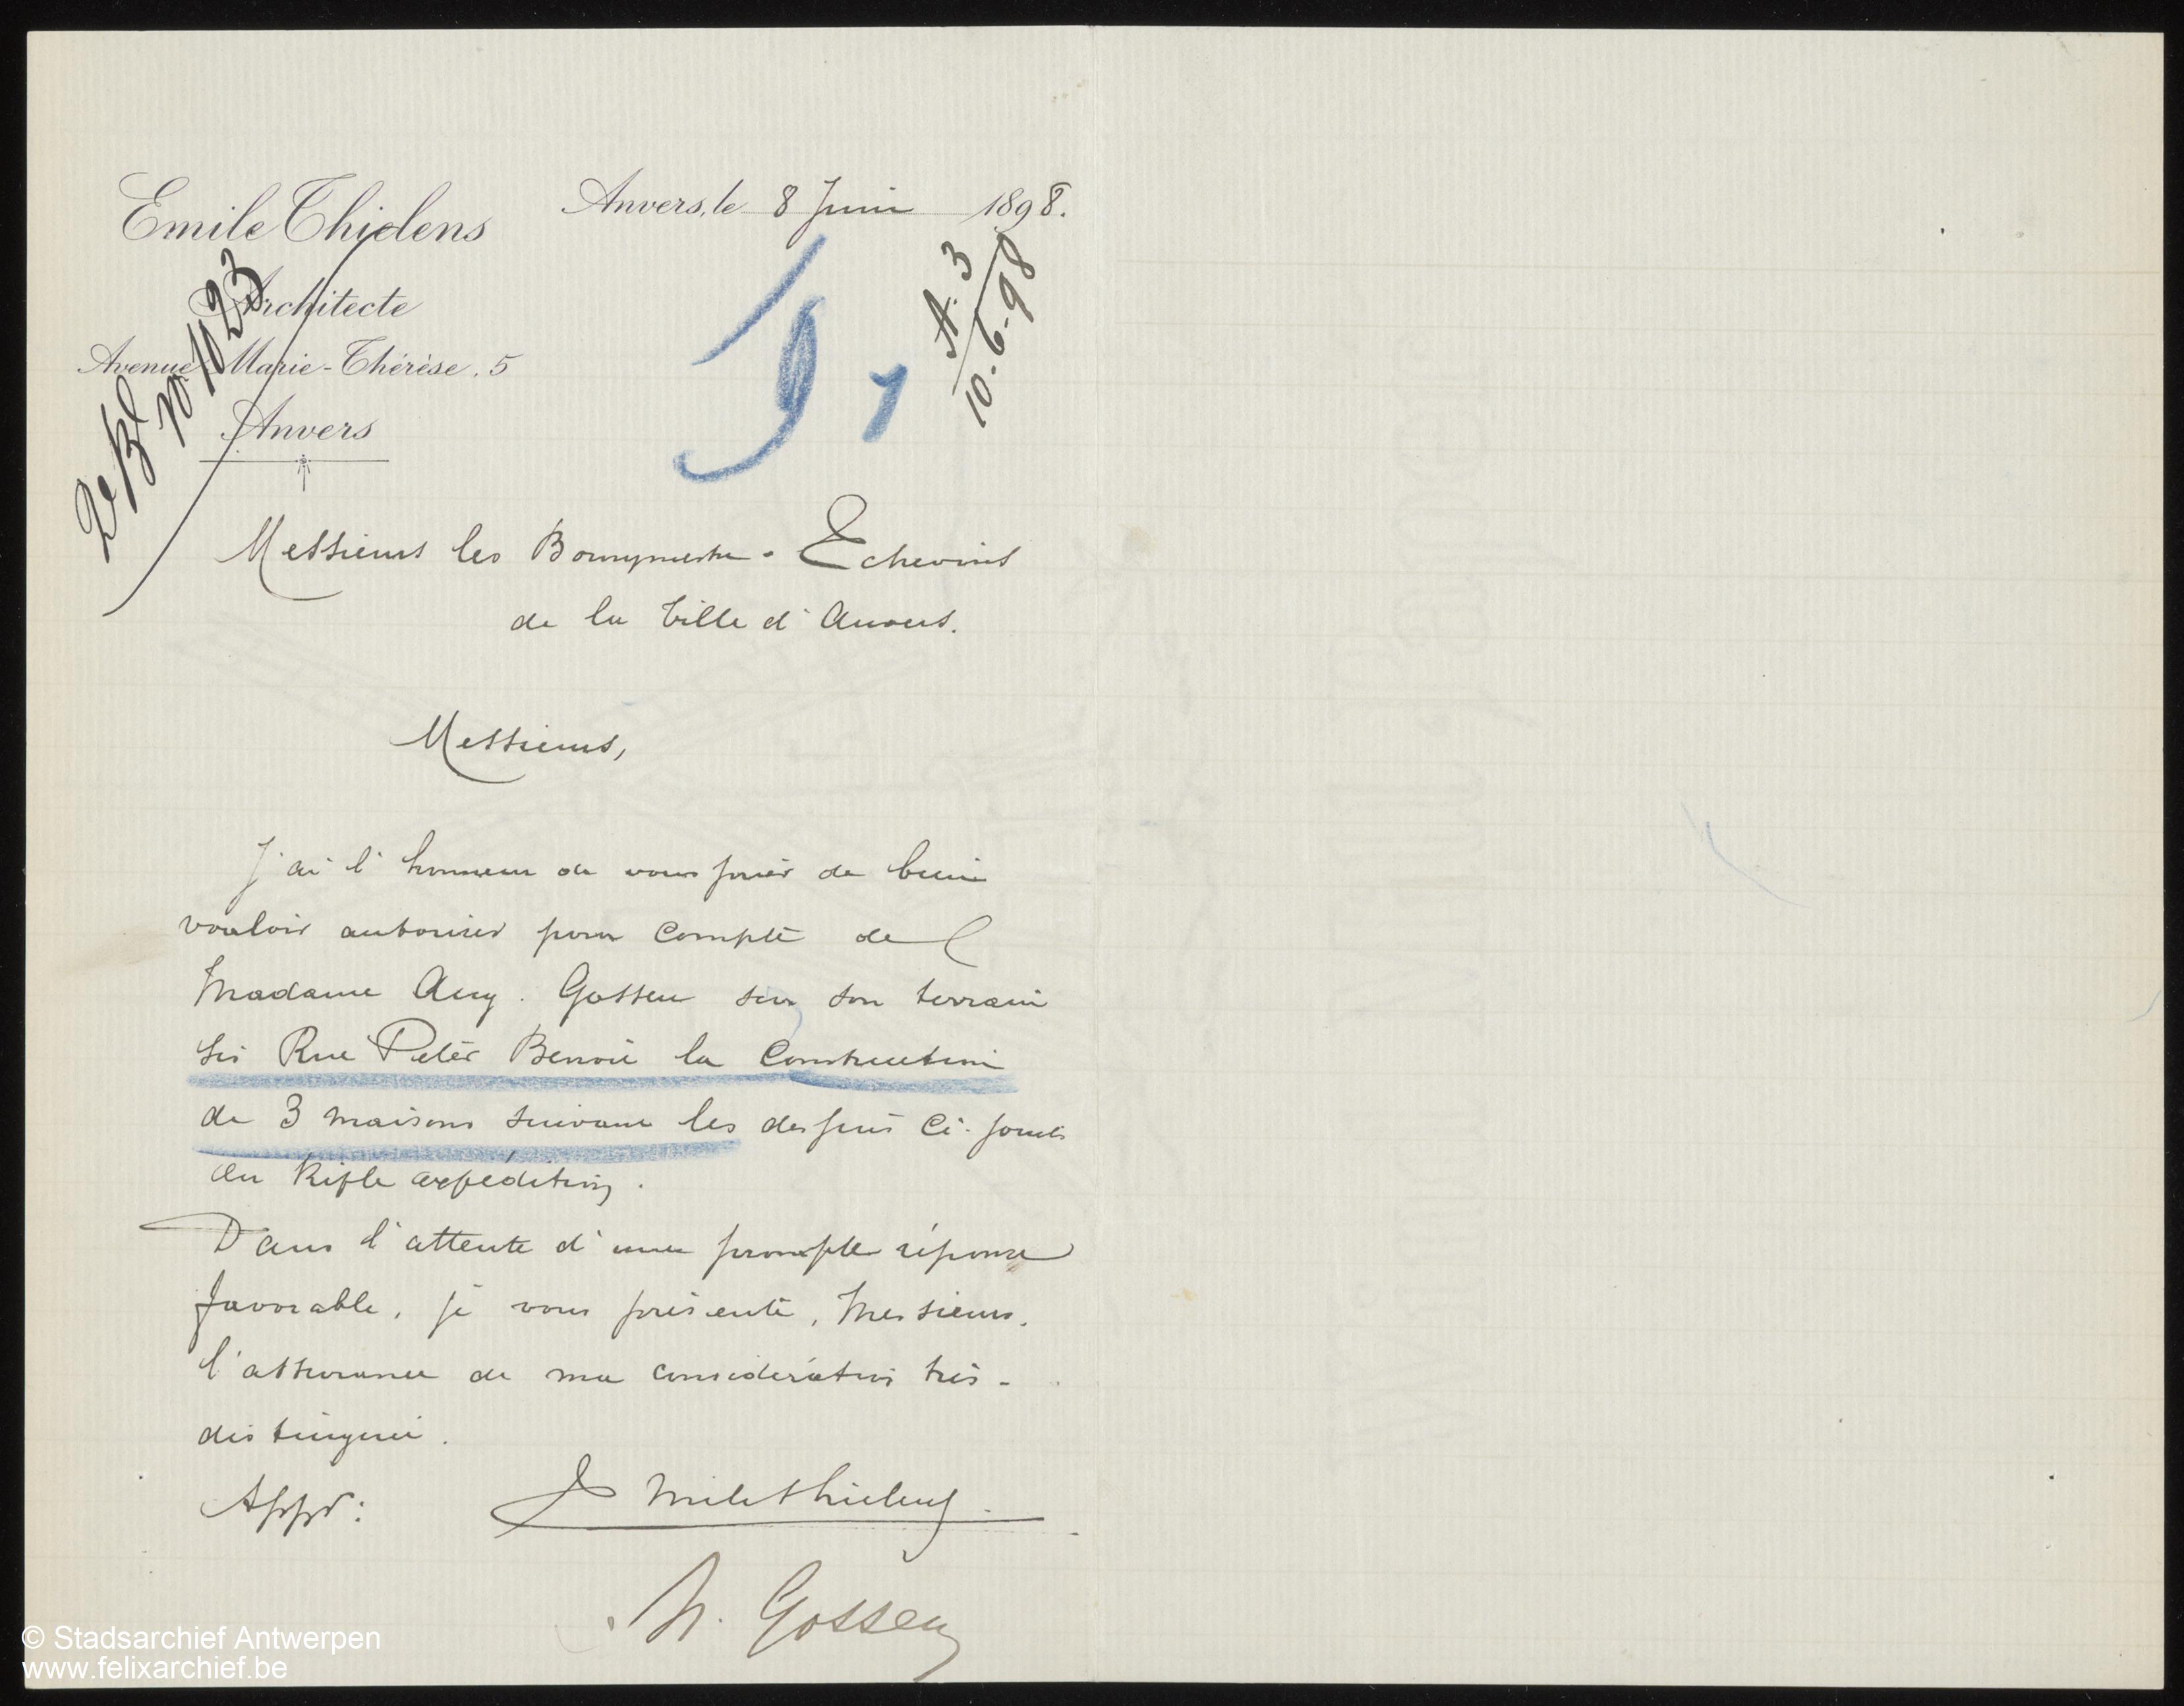 Emile Thielens
Architecte
Avenue Marie-Thérèse, 5
Anvers
Anvers, le 8 Juin 1898.
A. 3
10-6-98
Messieurs les Bourgmestre - Echevins
de la Ville d'Anvers.
Messieurs,
J'ai l'honneur de vous prier de bien
vouloir autoriser pour compte de
Madame Aug. Gossen sur son terrain
sis Rue Peter Benoit la Construction
de 3 maisons suivant les dessins ci-joints
en triple expédition.
Dans l'attente d'une prompte réponse
favorable, je vous présente, Messieurs,
l'assurance de ma considération très-
distinguée.
Appr:
Emile Thielens
Gossen
© Stadsarchief Antwerpen
www.felixarchief.be